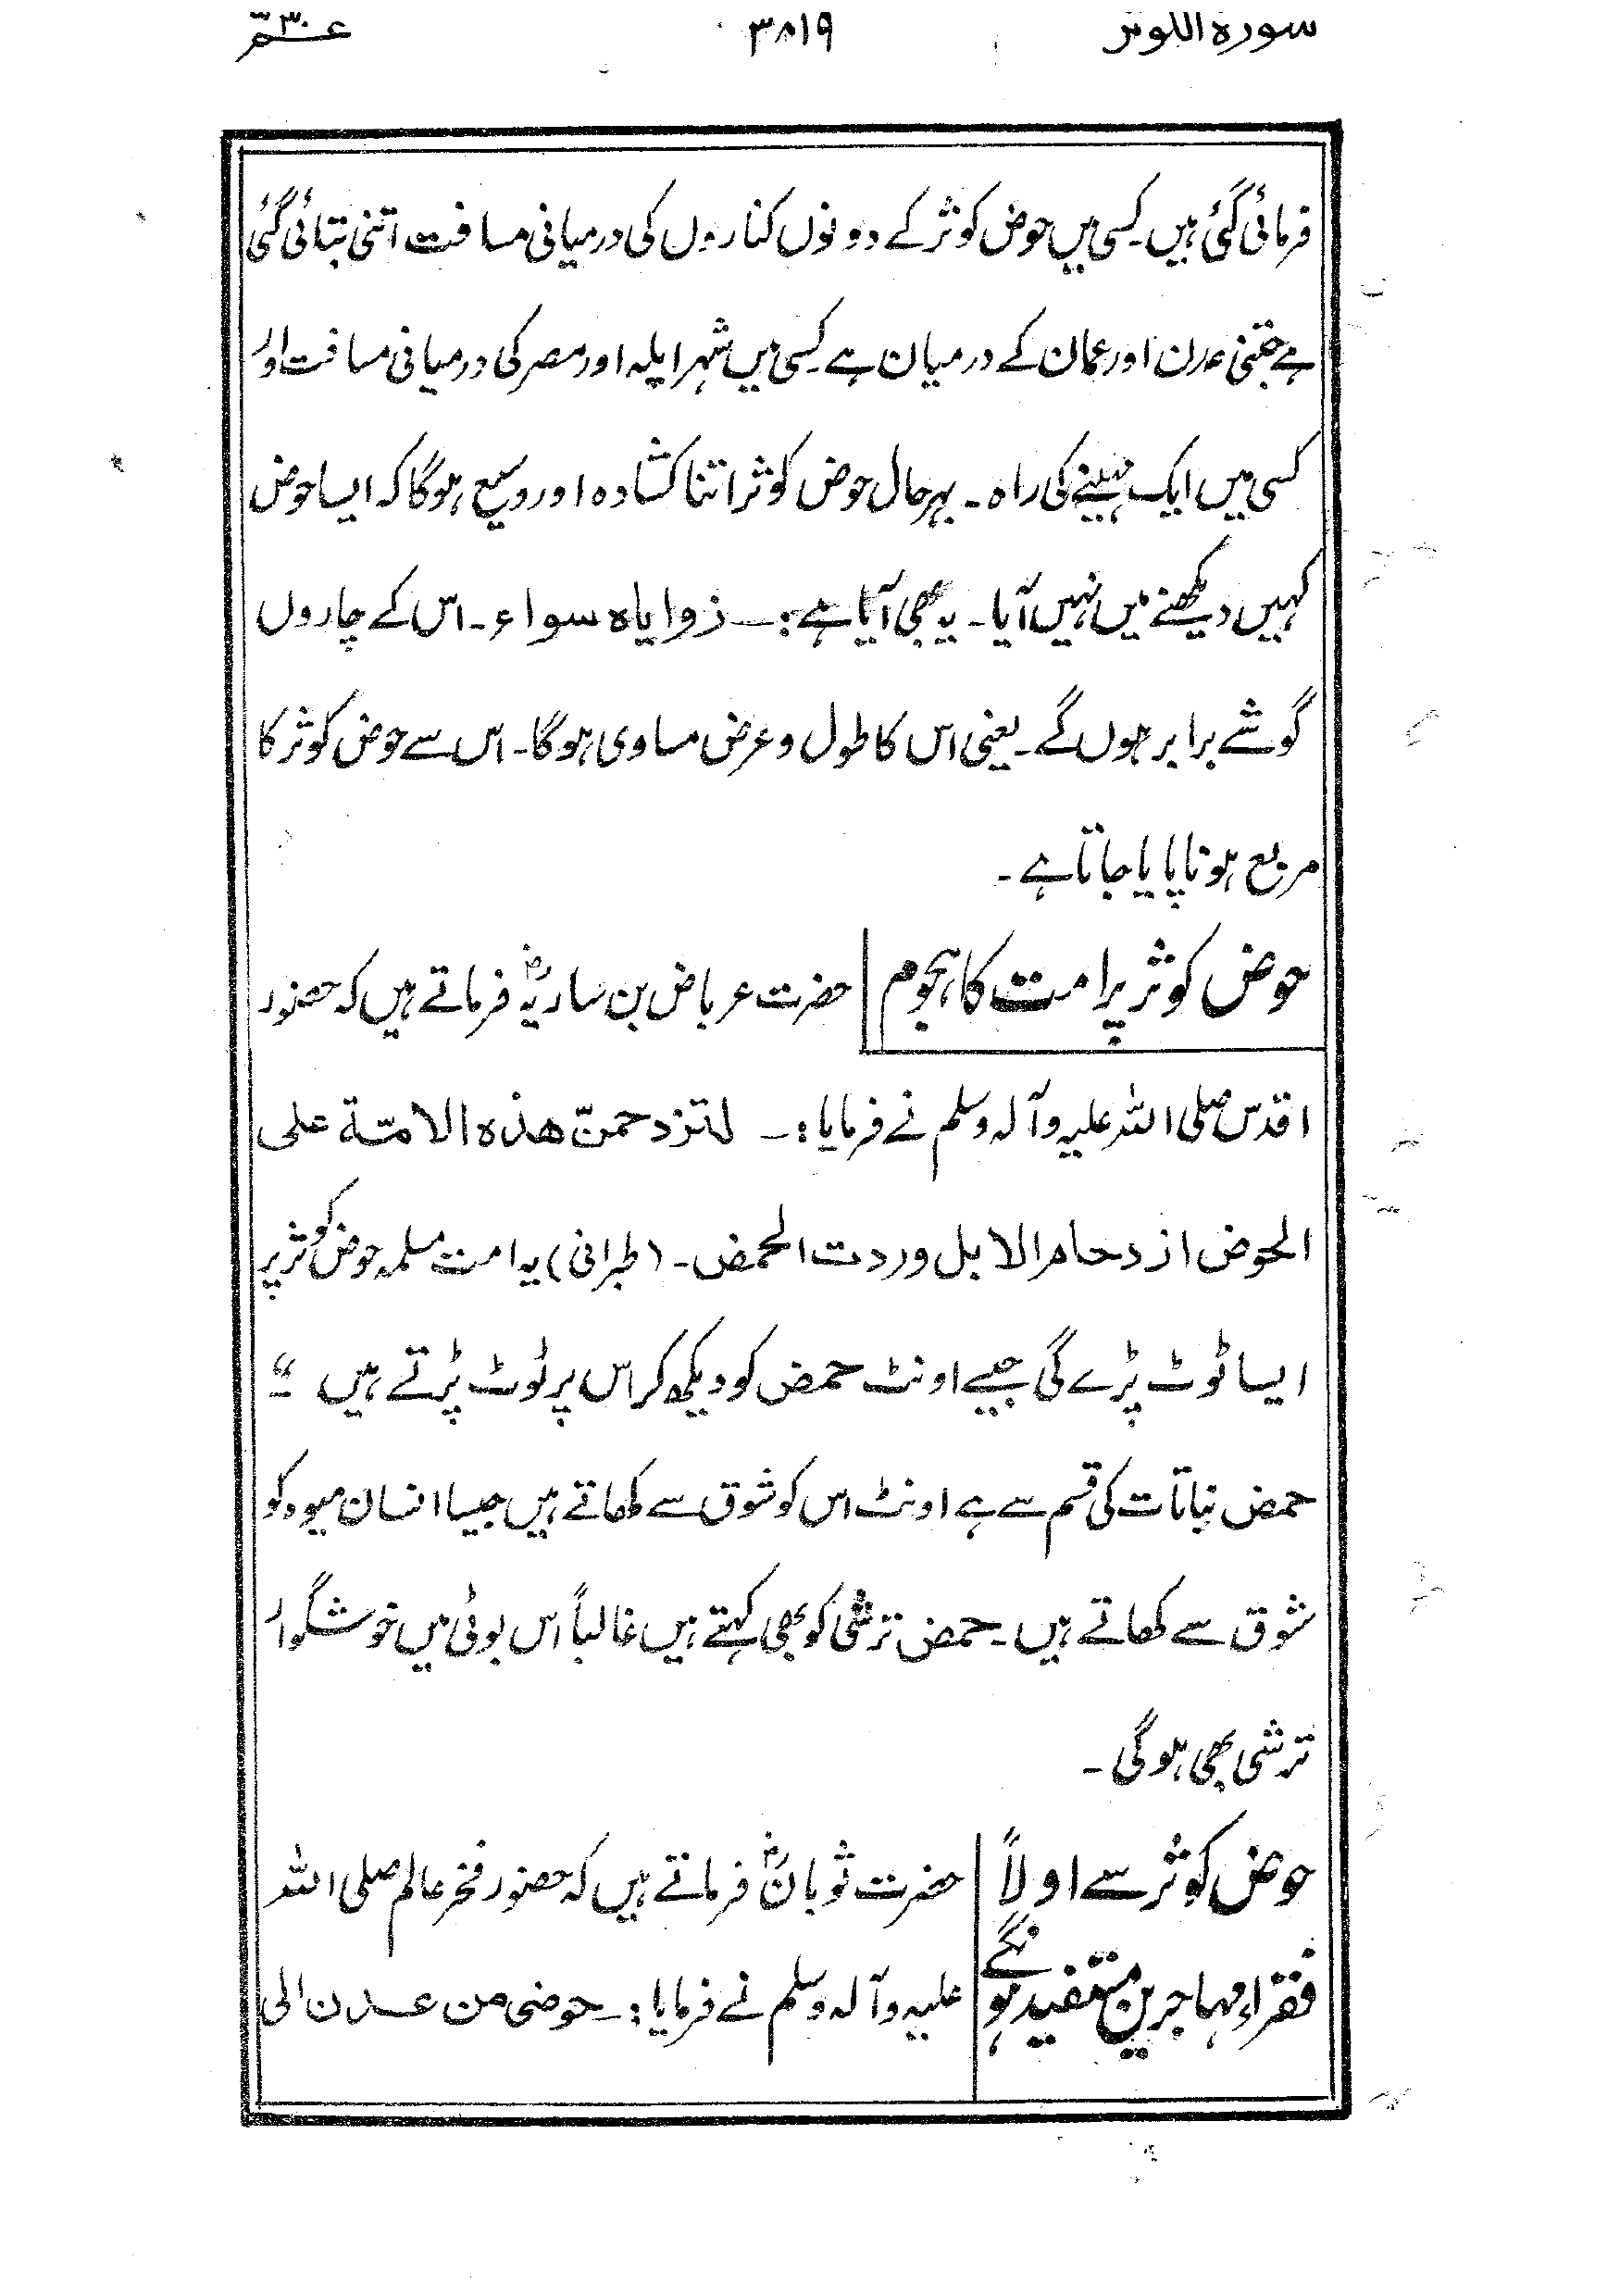 سورة الكوثر ۳۸۱۹ عم ۳۰
فرمائی گئی ہیں۔ کسی میں حوض کوثر کے دونوں کناروں کی درمیانی مسافت اتنی بتائی گئی
ہے جتنی عدن اور عمان کے درمیان ہے کسی میں شہر ایلہ اور مصر کی درمیانی مسافت اور
کسی میں ایک مہینے کی راہ۔ بہر حال حوض کوثر اتنا کشادہ اور وسیع ہوگا کہ ایسا حوض
کہیں دیکھنے میں نہیں آیا۔ یہ بھی آیا ہے:۔ زوایاہ سواء۔ اس کے چاروں
گوشے برابر ہوں گے۔ یعنی اس کا طول و عرض مساوی ہوگا۔ اس سے حوض کوثر کا
مربع ہونا پایا جاتا ہے۔
حوض کوثر پر امت کا ہجوم حضرت عرباض بن ساریہؓ فرماتے ہیں کہ حضور
اقدس صلی اللہ علیہ وآلہ وسلم نے فرمایا:۔ لتزدحمنّ هذه الامّة على
الحوض ازدحام الابل وردت الحمض۔ (طبرانی) یہ امت مسلمہ حوض کوثر پر
ایسا ٹوٹ پڑے گی جیسے اونٹ حمض کو دیکھ کر اس پر ٹوٹ پڑتے ہیں ۔“
حمض نباتات کی قسم سے ہے اونٹ اس کو شوق سے کھاتے ہیں جیسا انسان میوہ کو
شوق سے کھاتے ہیں۔ حمض ترشی کو بھی کہتے ہیں غالباً اس بوٹی میں خوشگوار
ترشی بھی ہوگی۔
حوض کوثر سے اولاً
فقراء مہاجرین مستفید ہونگے
حضرت ثوبانؓ فرماتے ہیں کہ حضور فخر عالم صلی اللہ
علیہ وآلہ وسلم نے فرمایا:۔ حوضی من عدن الی